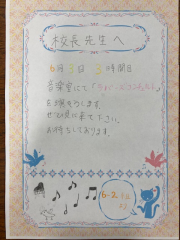 校長先生へ
6月3日 3時間目
音楽室にて
を開きます。
ぜひ見に来て下さい。
お待ちしております。
6-2